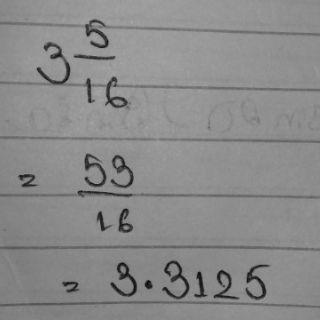 3 5/16
= 53/16
= 3.3125